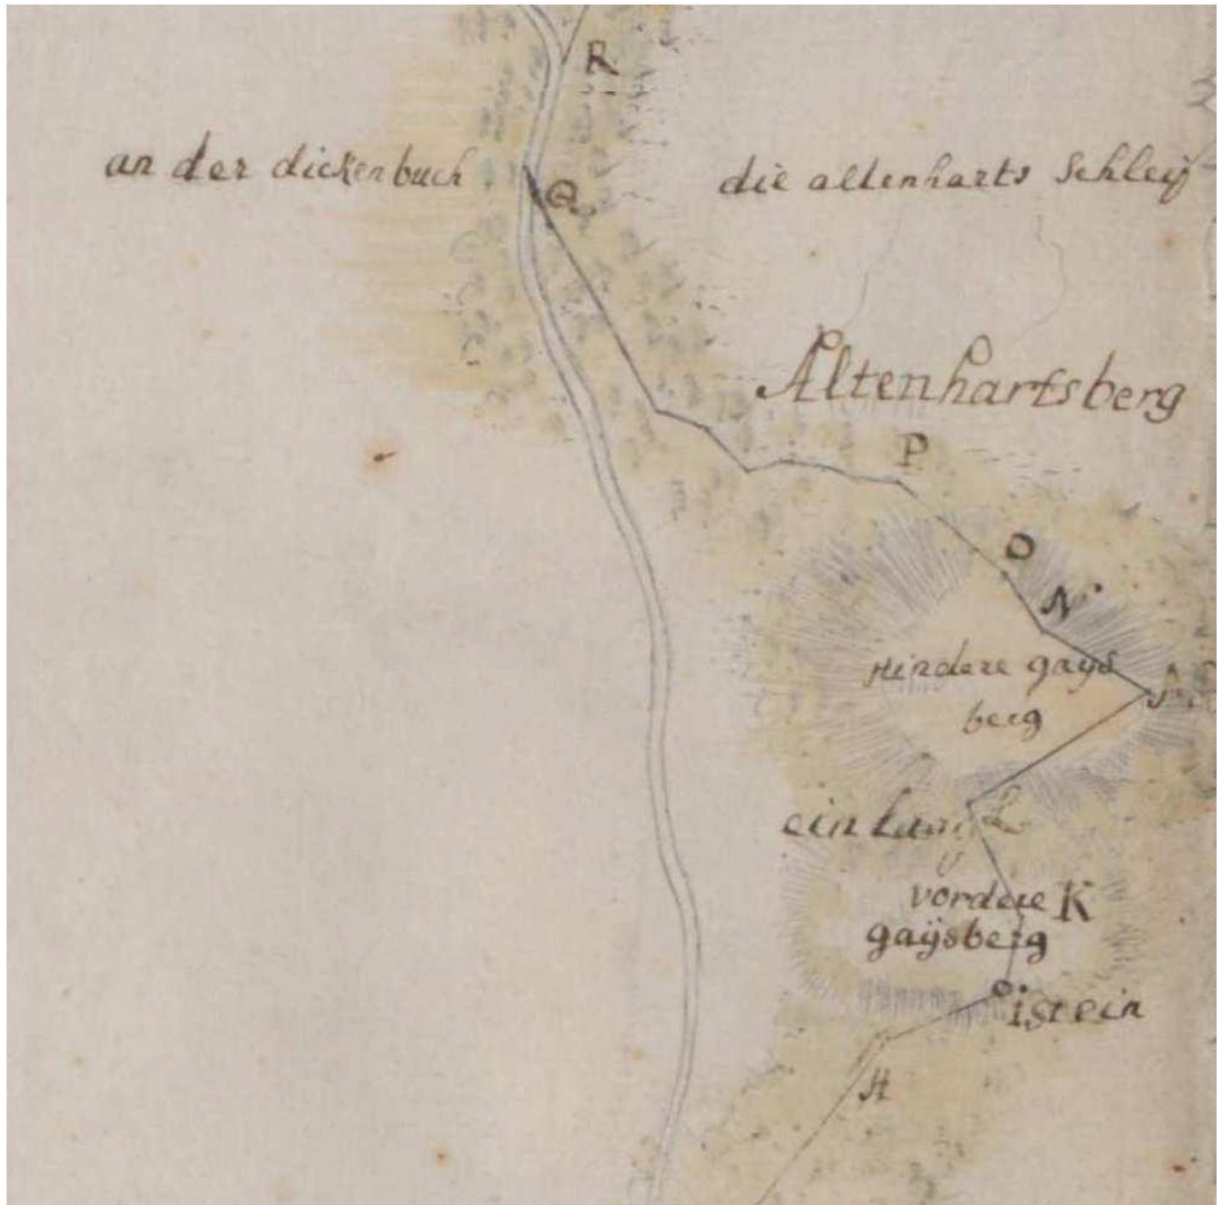 R
an der dickenbuch
Q
die altenharts Schleiff
Altenhartsberg
P
O
N
Hindere gays
berg
M
ein
L
vordere K
gaÿsberg
istein
H